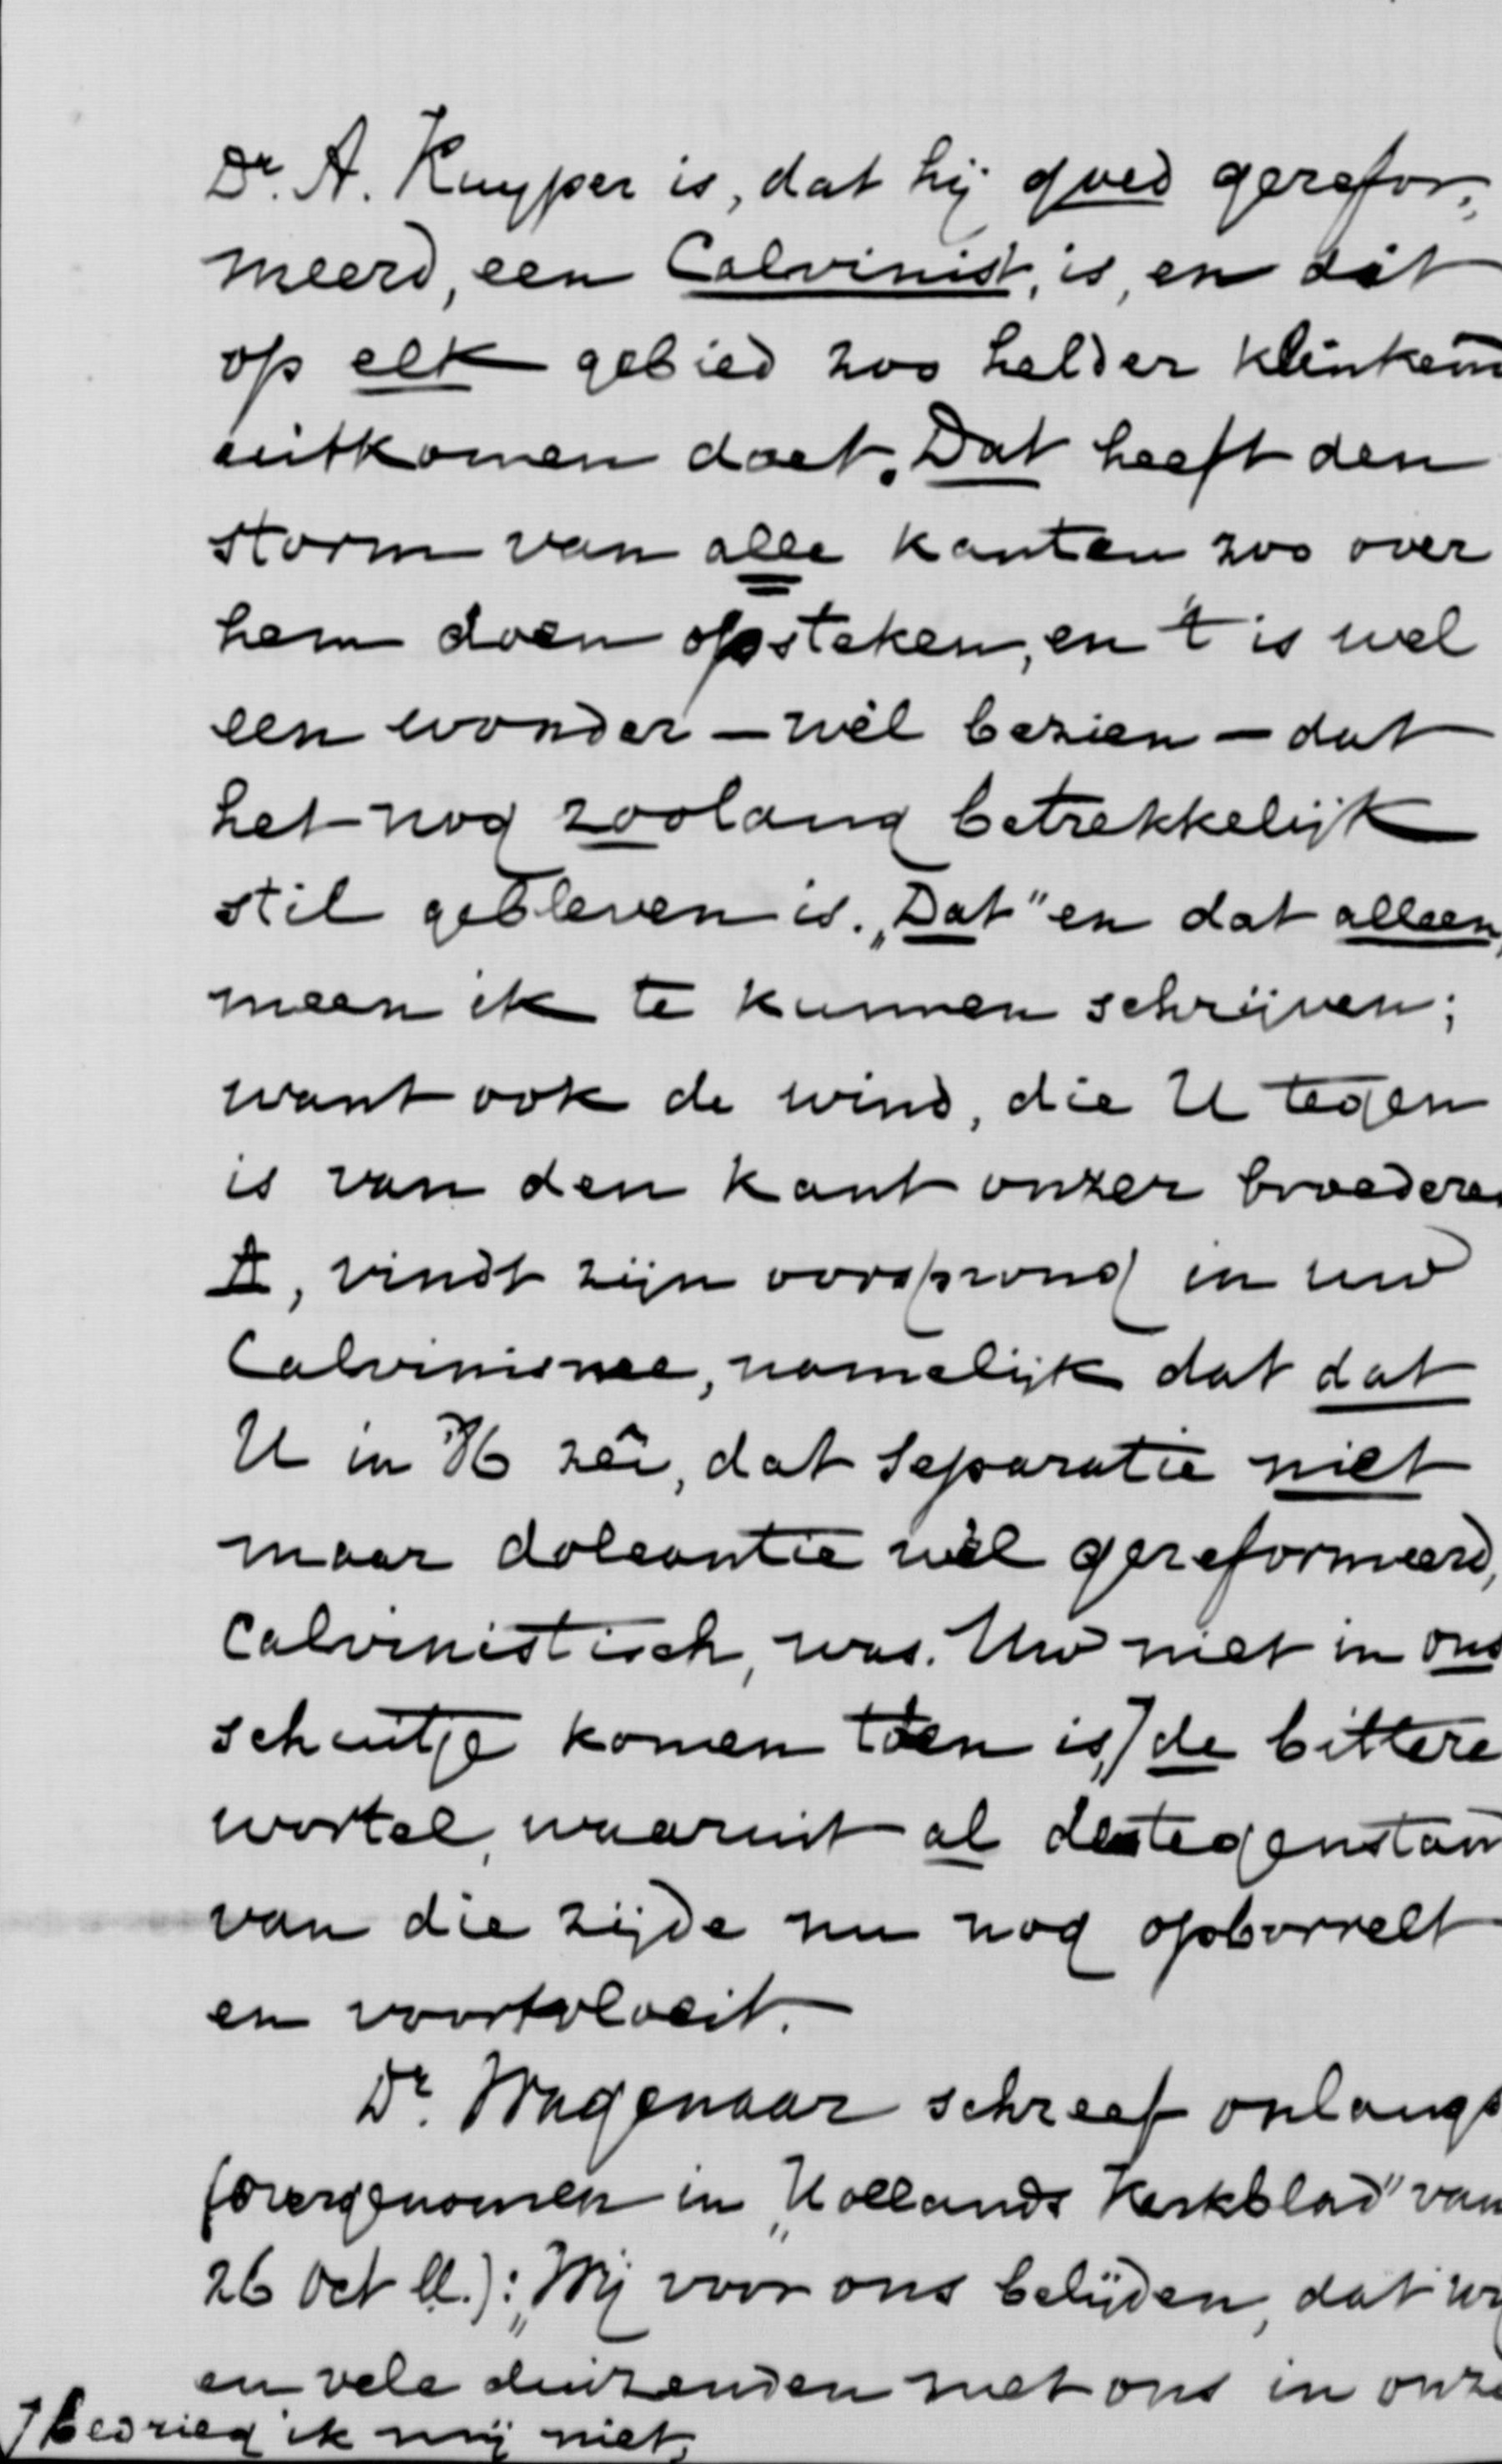 Dr. A. Kuyper is, dat hij goed gerefor„
meerd, een Calvinist, is, en dát
op elk gebied zoo helder klinkend
uitkomen doet. Dat heeft den
storm van alle kanten zoo over
hem doen opsteken, en 't is wel
een wonder – wèl bezien – dat
het nog zoolang betrekkelijk
stil gebleven is. „Dat" en dat alleen,
meen ik te kunnen schrijven;
want ook de wind, die U tegen
is van den kant onzer broederen
A, vindt zijn oorsprong in uw
Calvinisme, namelijk dat dat
U in '86 zei, dat Separatie niet
maar doleantie wèl gereformeerd,
Calvinistisch, was. Uw niet in ons
schuitje komen toen is,⌉ de bittere
wortel, waaruit al de tegenstand
van die zijde nu nog opborrelt
en voortvloeit.
Dr. Wagenaar schreef onlangs
(overgenomen in „Hollands Kerkblad" van
26 Oct ll.): „Wij voor ons belijden, dat wij
en vele duizenden met ons in onze
⌉ bedrieg ik mij niet,